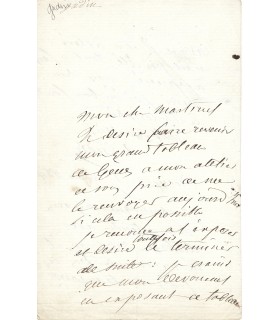 mon cher Martinet
Je desire faire revenir
mon grand tableau
de Goués a mon atelier
je vous prie de me
le renvoyer aujourd'hui
si cela est possible
je renonce a l'exposer
et desire toutefois le terminer
de suite: je crains
que mon devouement
en exposant ce tableau